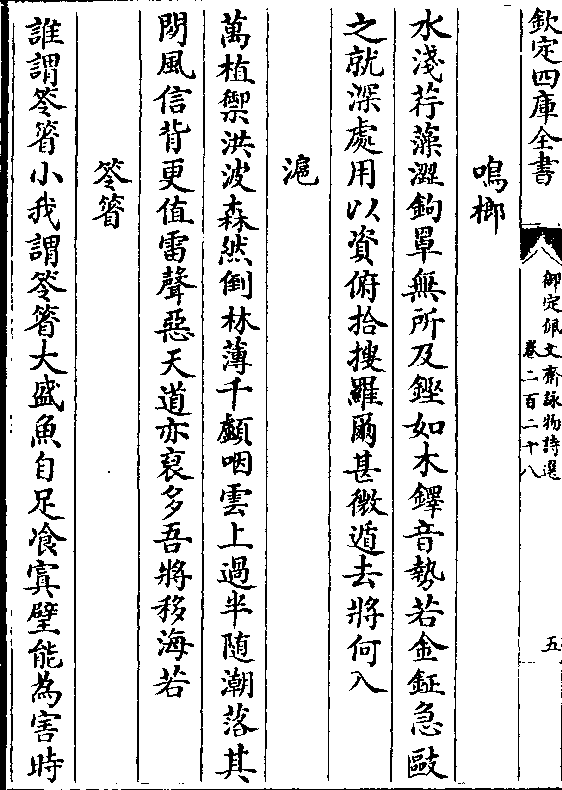 欽定四庫全書
御定佩文齋詠物詩選
卷二百二十八
五
鳴榔
水淺荇藻澀鉤罩無所及鏗如木鐸音勢若金鉦急敺
之就深處用以資俯拾搜羅爾甚微遁去將何入
滬
萬植禦洪波森然倒林薄千顱咽雲上過半隨潮落其
間風信背更值雷聲惡天道亦裒多吾將移海若
笭箵
誰謂笭箵小我謂笭箵大盛魚自足飡寘璧能為害時